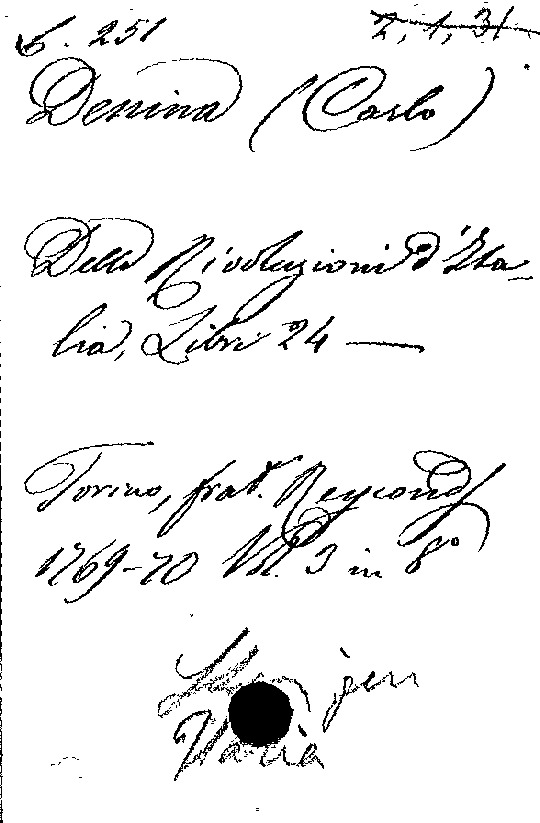 b. 251 2, 1, 31
Denina (Carlo)
Delle Rivoluzioni d'Ita-
lia, Libri 24 —
Torino, frat. Reycends
1769-70 Vol. 3 in 8°
gen
Italia